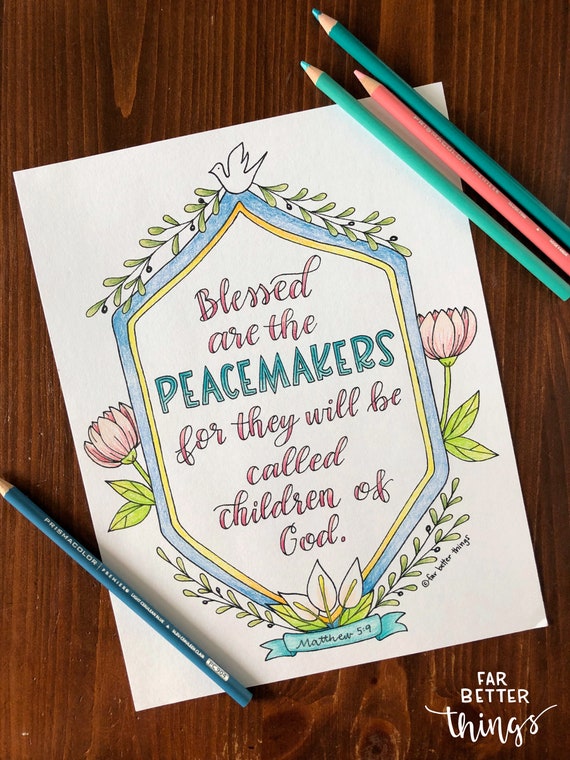 Blessed
are the
PEACEMAKERS
for they will be
called
children of
God.
Matthew 5:9
©far better things
PRISMACOLOR
PREMIER
FAR
BETTER
things